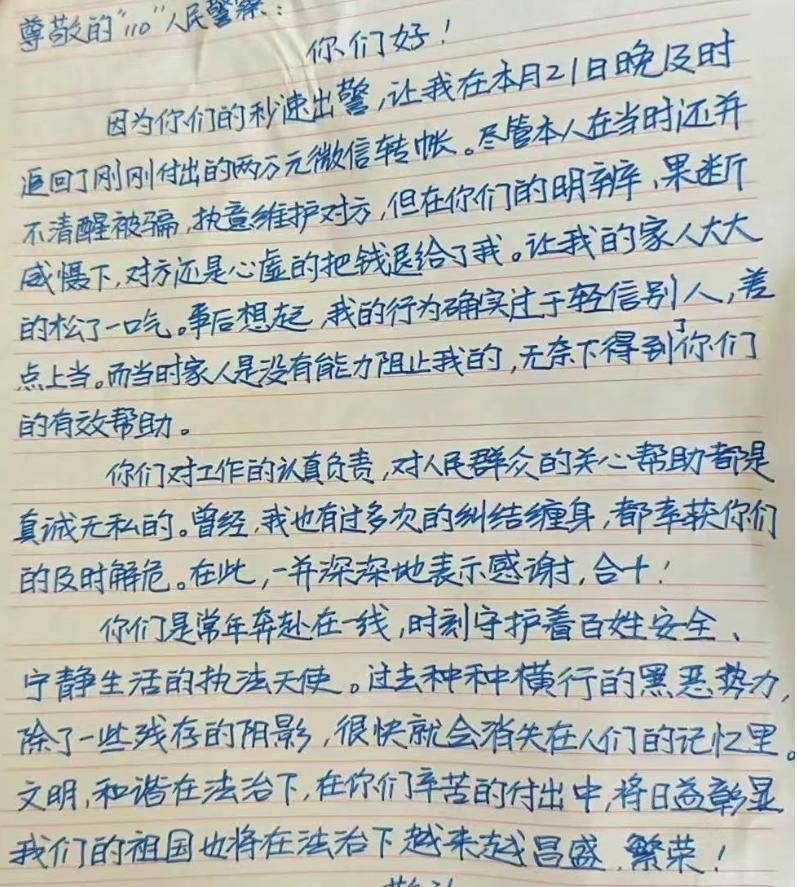 尊敬的“110”人民警察:
你们好!
因为你们的秒速出警,让我在本月21日晚及时
追回了刚刚付出的两万元微信转帐。尽管本人在当时还并
不清醒被骗,执意维护对方,但在你们的明辨、果断
威慑下,对方还是心虚的把钱退给了我。让我的家人大大
的松了一口气。事后想起,我的行为确实过于轻信别人,差
点上当。而当时家人是没有能力阻止我的,无奈下得到了你们
的有效帮助。
你们对工作的认真负责,对人民群众的关心帮助都是
真诚无私的。曾经,我也有过多次的纠结缠身,都幸获你们
的及时解危。在此,一并深深地表示感谢,合十!
你们是常年奔赴在一线,时刻守护着百姓安全、
宁静生活的执法天使。过去种种横行的黑恶势力,
除了一些残存的阴影,很快就会消失在人们的记忆里。
文明,和谐在法治下,在你们辛苦的付出中,将日益彰显
我们的祖国也将在法治下越来越昌盛、繁荣!